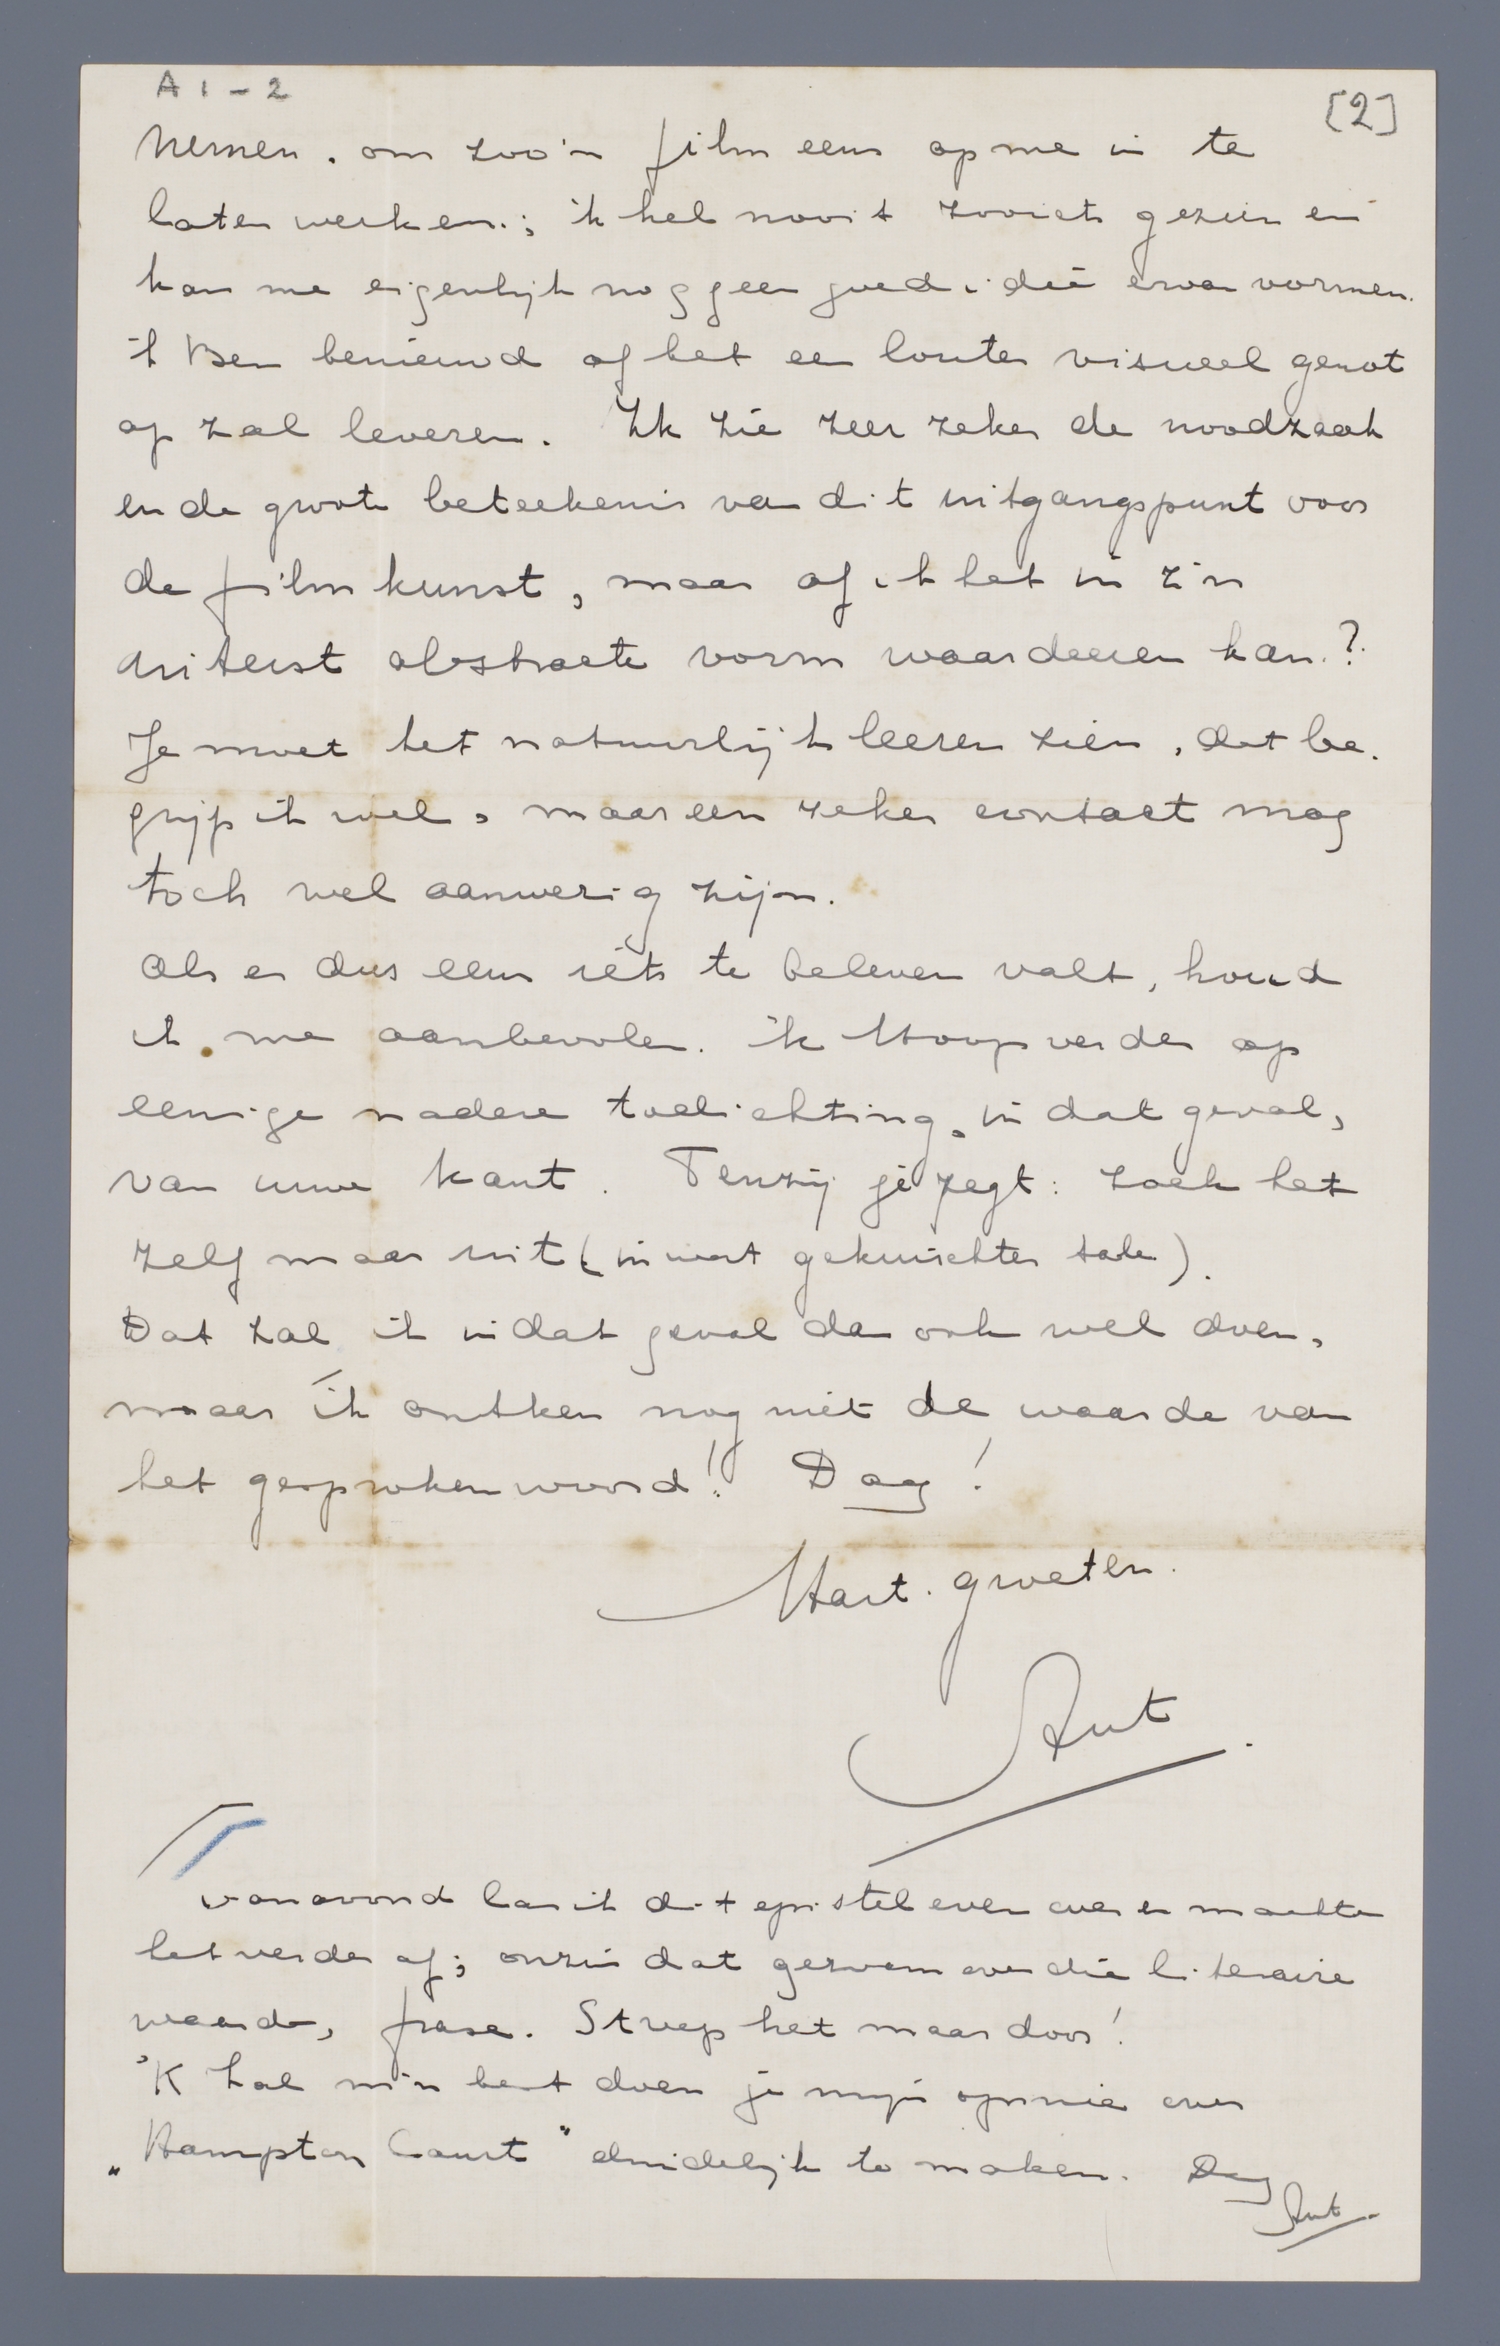 A 1 - 2
[2]
nemen, om zoo'n film eens op me in te
laten werken.; ik heb nooit zooiets gezien en
kan me eigenlijk nog geen goed idée ervan vormen.
ik Ben benieuwd of het een louter visueel genot
op zal leveren. Ik zie zeer zeker de noodzaak
en de groote beteekenis van dit uitgangspunt voor
de filmkunst, maar of ik het in z'n
uiterst abstracte vorm waardeeren kan.?
Je moet het natuurlijk leeren zien, dat be-
grijp ik wel, maar een zeker contact mag
toch wel aanwezig zijn.
Als er dus eens iets te beleven valt, houd
ik me aanbevolen. ik Hoop verder op
eenige nadere toelichting, in dat geval,
van uwe kant. Tenzij je zegt: zoek het
zelf maar uit (in wat gekuischter taal).
Dat zal ik in dat geval dan ook wel doen,
maar ik ontken nog niet de waarde van
het gesproken woord! Dag!
Hart. groeten.
Rut.
vanavond las ik dit epistel even over en maakte
het verder af; onzin dat gezwam over die literaire
waarde, frase. Streep het maar door!
'K zal m'n best doen je mijn opinie over
„Hampton Court" duidelijk te maken. Dag
Rut.